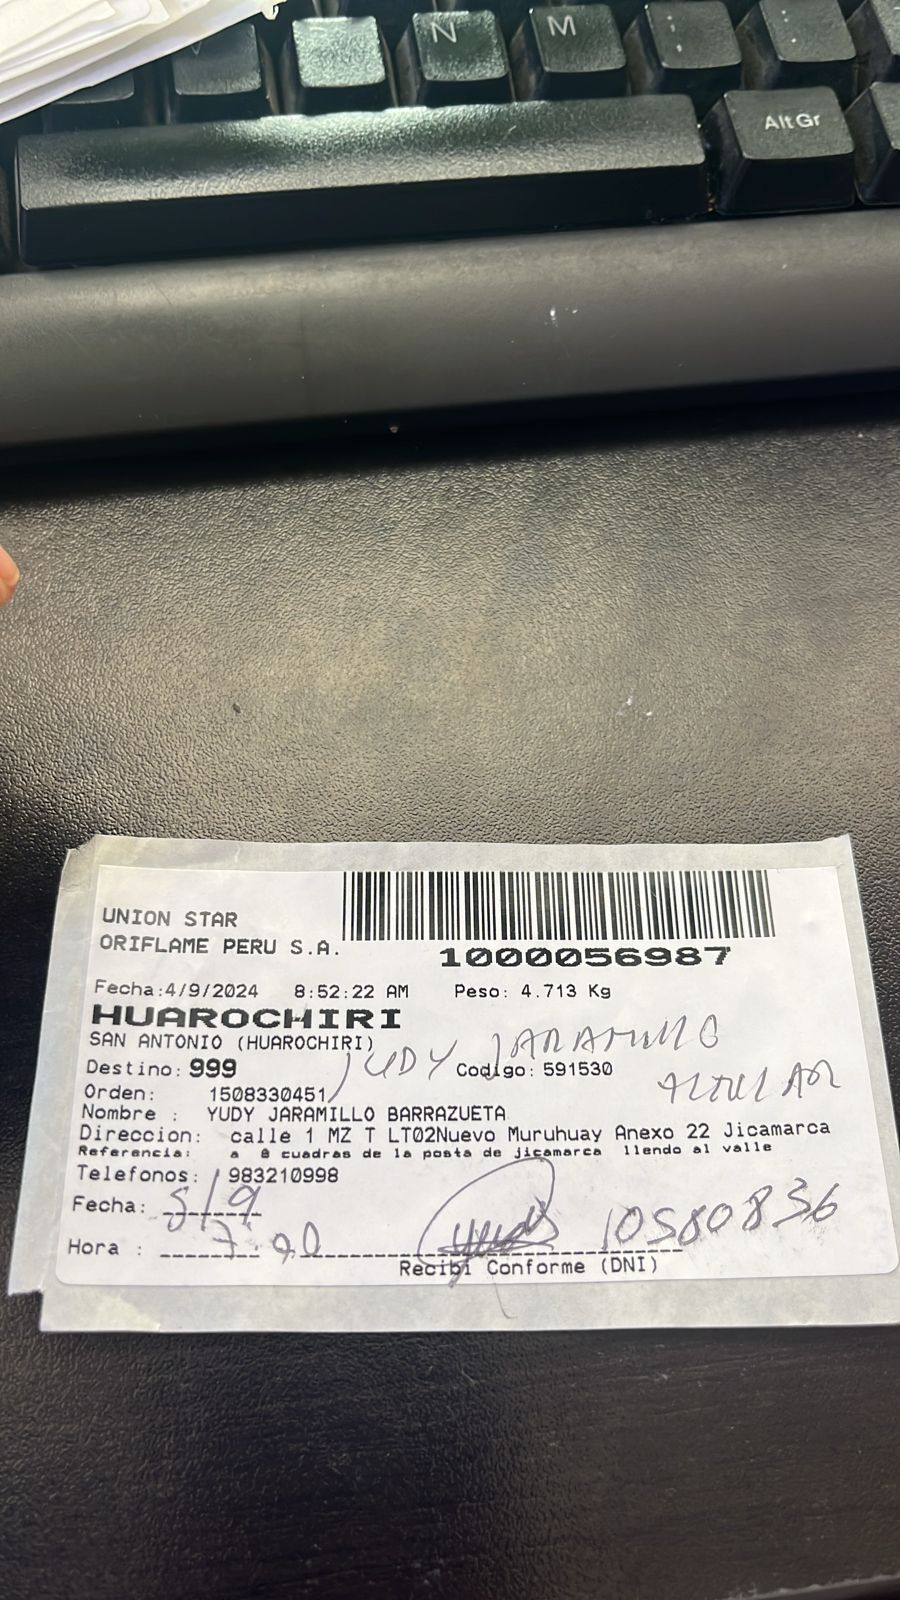 N M ; :
Alt Gr
UNION STAR
ORIFLAME PERU S.A.
1000056987
Fecha:4/9/2024 8:52:22 AM Peso: 4.713 Kg
HUAROCHIRI
SAN ANTONIO (HUAROCHIRI)
YUDY JARAMILLO
Destino: 999 Codigo: 591530
TITULAR
Orden: 1508330451
Nombre : YUDY JARAMILLO BARRAZUETA
Direccion: calle 1 MZ T LT02Nuevo Muruhuay Anexo 22 Jicamarca
Referencia: a 8 cuadras de la posta de jicamarca llendo al valle
Telefonos: 983210998
Fecha: 5/9
10580836
Hora :
Recibi Conforme (DNI)